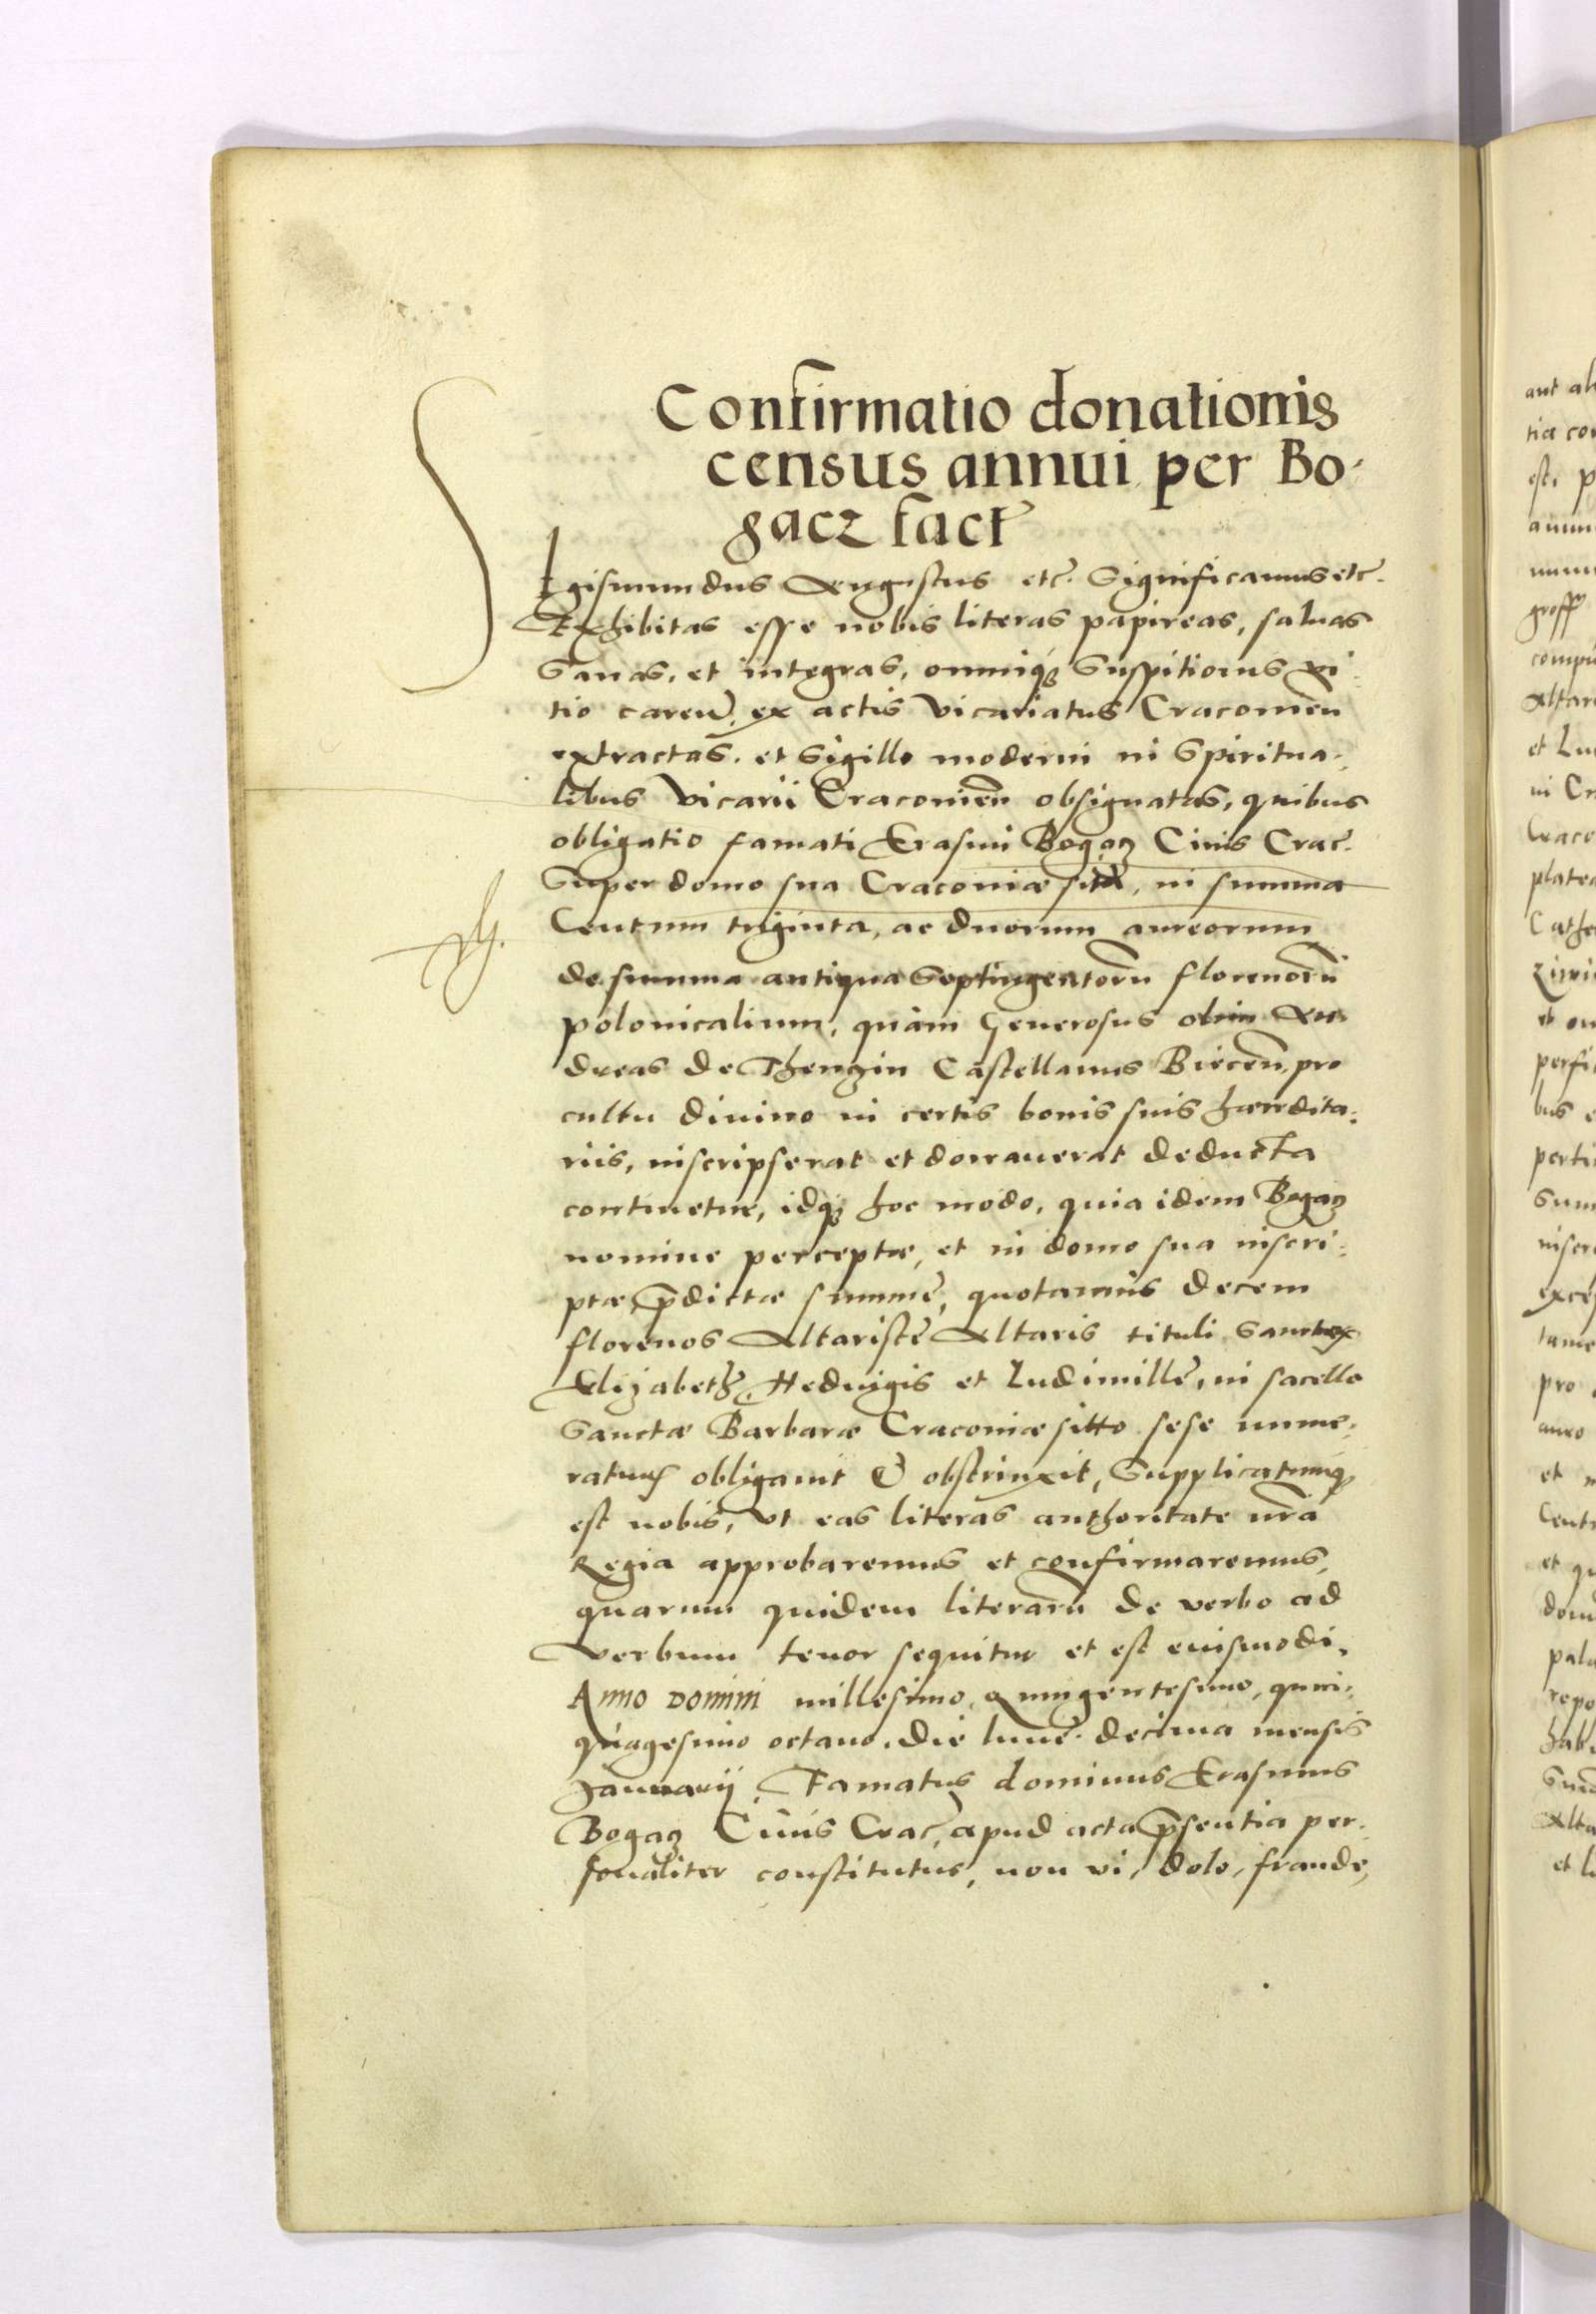 Confirmatio donationis
census annui per Bo-
gacz fact
Sigismundus Augustus etc. Significamus etc.
Exhibitas esse nobis literas papireas, saluas
Sanas, et integras, omniq; Suspitionis vi-
tio caren, ex actis Vicariatus Cracouien
extractas, et Sigillo moderni in Spiritua-
libus Vicarii Cracouien obsignatas, quibus
obligatio famati Erasmi Bogacz Ciuis Crac.
Super domo sua Cracouiæ sita, in summa
Centum triginta, ac duorum aureorum
de summa antiqua Septingentoru florenoru
polonicalium, quam Generosus olim An-
dreas de Thenczin Castellanus Biecen, pro
cultu diuino in certis bonis suis hæredita-
riis, inscripserat et donauerat deducta
continetur, idq; hoc modo, quia idem Bogacz
nomine perceptæ, et in domo sua inscri-
ptæ, pdictæ summę, quotannis decem
florenos Altaristę Altaris tituli Sanctar
Elizabeth, Heduigis et Ludimillę, in sacello
Sanctæ Barbaræ Cracouiæ sitto sese nume-
ratur obligauit & obstrinxit, Supplicatumq;
est nobis, vt eas literas authoritate nra
Regia approbaremus et confirmaremus,
quarum quidem literaru de verbo ad
verbum tenor sequitur et est eiusmodi.
Anno Domini millesimo, quingentesimo, quin-
quagesimo octauo, die lunę decima mensis
Januarij, Famatus dominus Erasmus
Bogacz Ciuis Crac, apud acta psentia per-
sonaliter constitutus, non vi, dolo, fraude,
ant al